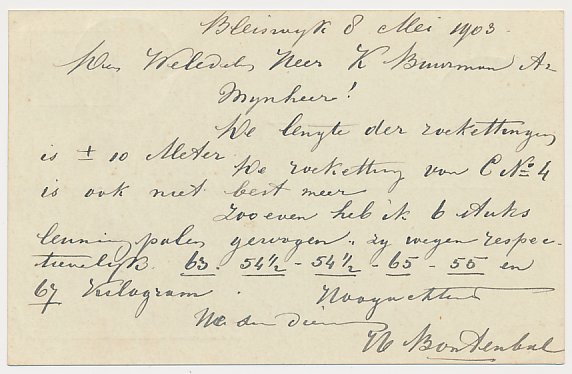 Bleiswyk 8 Mei 1903
Den Weledele Heer K Buurman Az
Mynheer!
De lengte der zoekettingen
is ± 10 Meter
De zoeketting van C No 4
is ook niet best meer
Zoo even heb ik 6 stuks
leuning palen gewogen, zy wegen respec-
tievelyk. 63. 54 1/2 - 54 1/2 - 65 - 55 en
67 kilogram. Hoogachtend
Uw dw Dien
Bontenbal